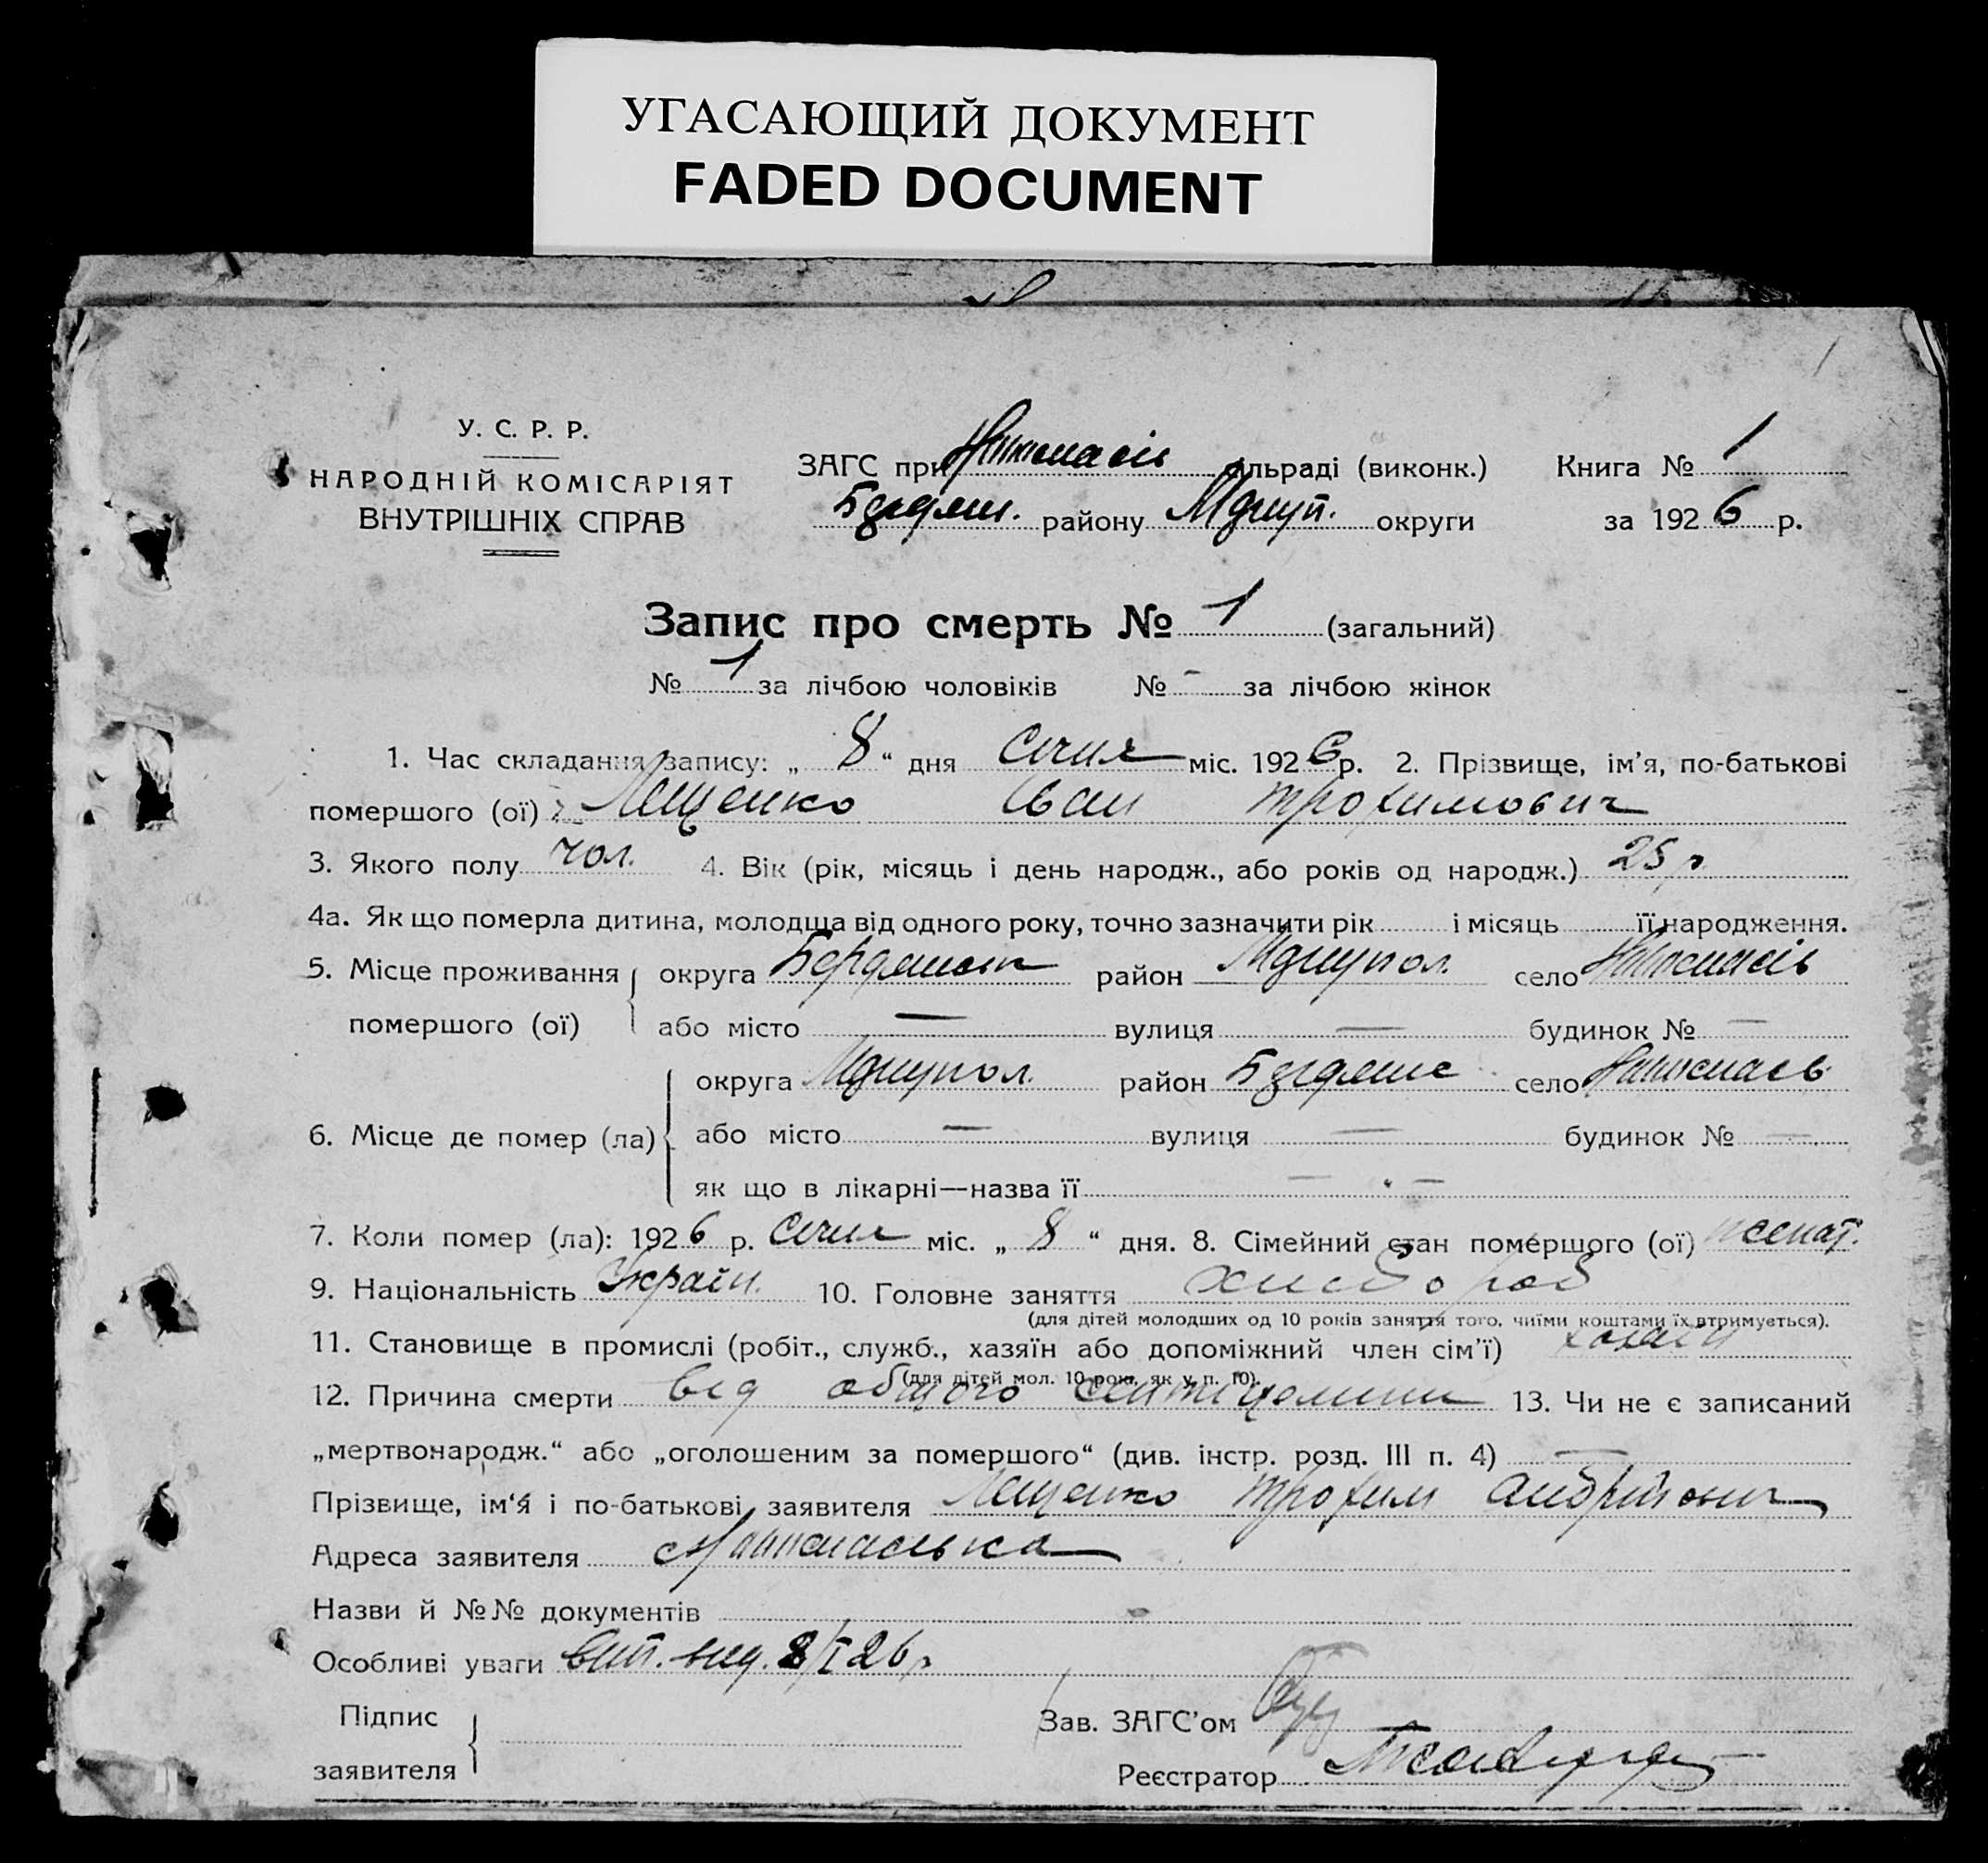 УГАСАЮЩИЙ ДОКУМЕНТ
FADED DOCUMENT
У. С. Р. Р.
НАРОДНІЙ КОМІСАРІЯТ
ВНУТРІШНІХ СПРАВ
ЗАГС при сільраді (виконк.)
району округи
Книга № 1
за 1926 р.
Запис про смерть № 1 (загальний)
№ 1 за лічбою чоловіків № - за лічбою жінок
1. Час складання запису: „ 8 “ дня Січня міс. 1926 р. 2. Прізвище, ім’я, по-батькові
помершого (ої) Лещенко Іван Трохимович
3. Якого полу чол. 4. Вік (рік, місяць і день народж., або років од народж.) 25 р.
4а. Як що померла дитина, молодща від одного року, точно зазначити рік і місяць її народження.
5. Місце проживання округа район село
помершого (ої) або місто — вулиця — будинок № —
округа район село
6. Місце де помер (ла) або місто — вулиця — будинок № —
як що в лікарні—назва її — —
7. Коли помер (ла): 1926 р. Січня міс. „ 8 “ дня. 8. Сімейний стан помершого (ої) женат.
9. Національність Україн. 10. Головне заняття хлібороб
(для дітей молодших од 10 років заняття того, чиїми коштами їх втримується).
11. Становище в промислі (робіт., служб., хазяїн або допоміжний член сім’ї) хазяїн
(для дітей мол. 10 рок., як у п. 10).
12. Причина смерти від общого 13. Чи не є записаний
„мертвонародж.“ або „оголошеним за помершого“ (див. інстр. розд. III п. 4) —
Прізвище, ім‘я і по-батькові заявителя Лещенко Трохим Андрійович
Адреса заявителя
Назви й №№ документів -
Особливі уваги вит. вид. 8/I 26 р.
Підпис
заявителя
Зав. ЗАГС’ом
Реєстратор